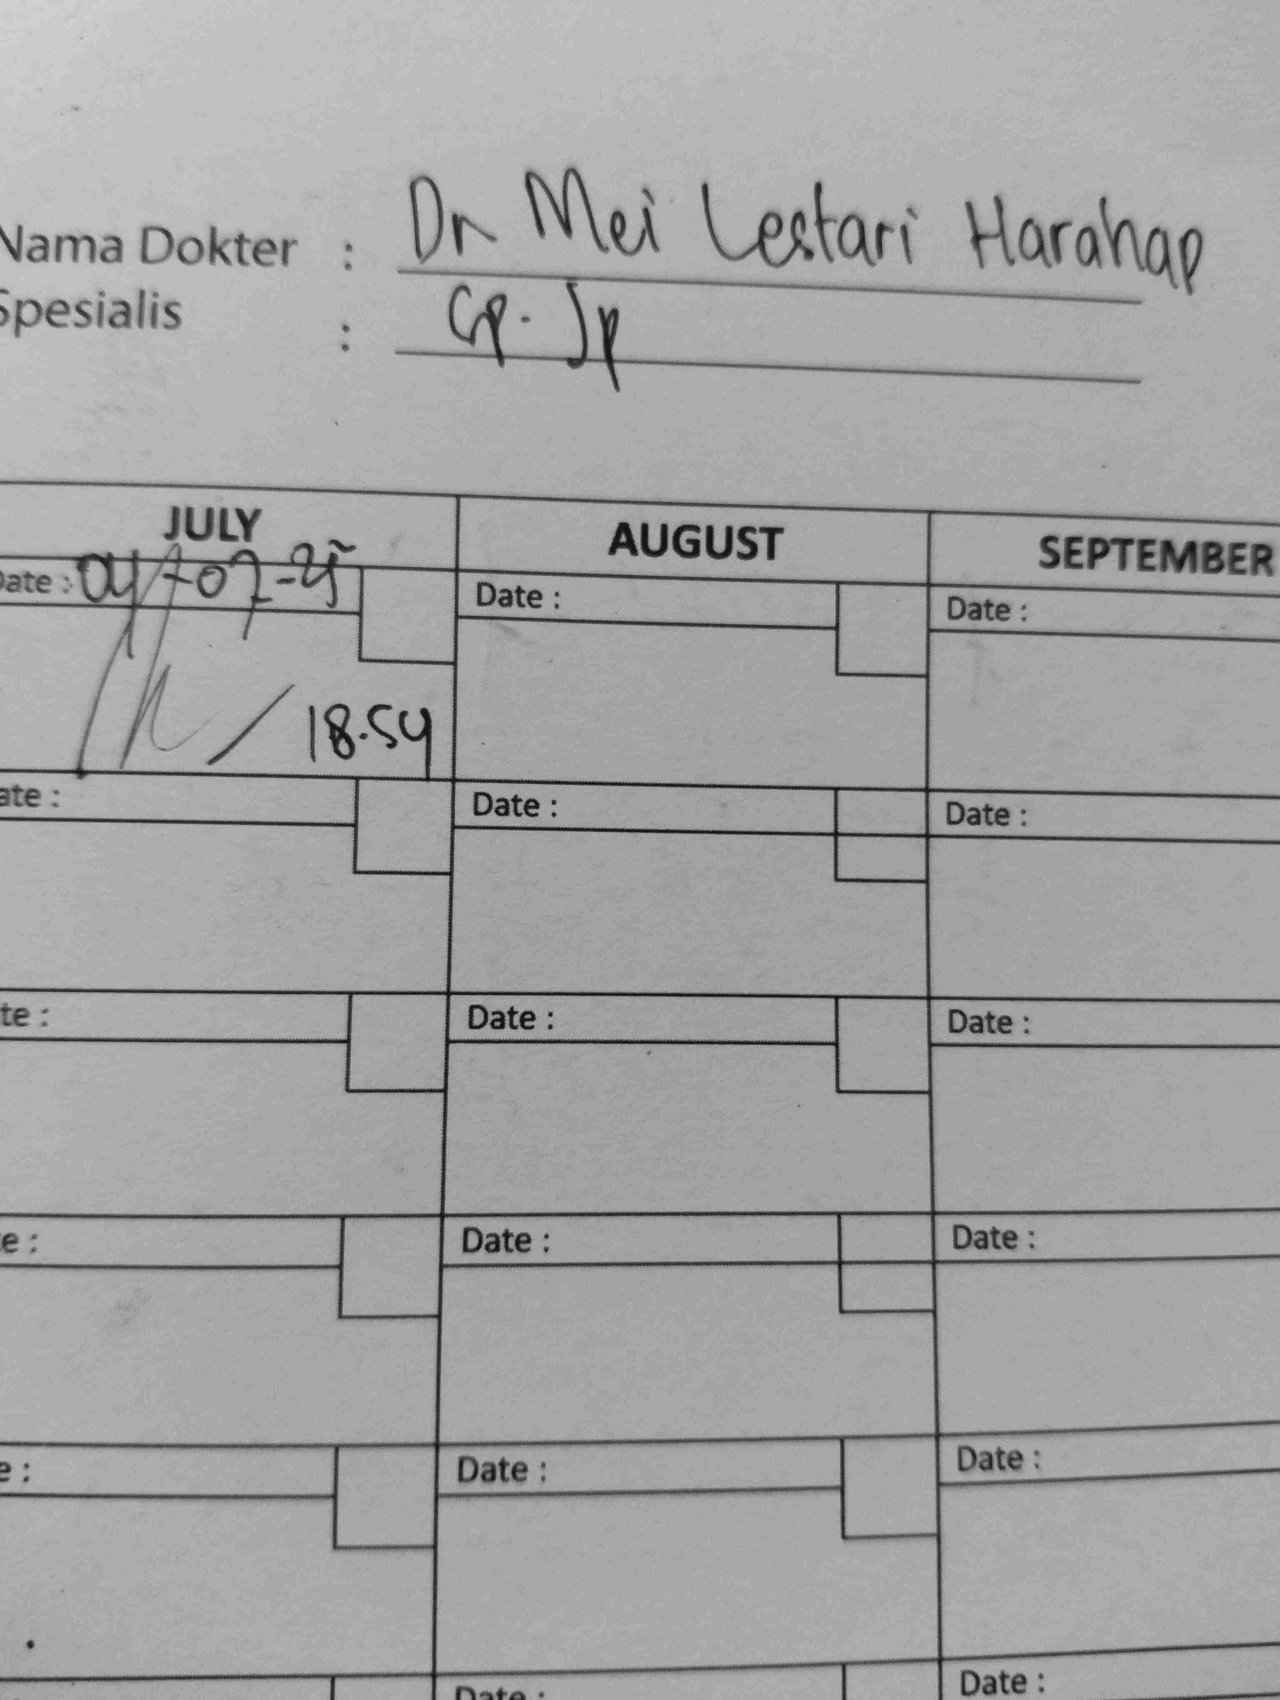 Nama Dokter : Dr Mei Lestari Harahap
Spesialis : Sp. Jp
JULY AUGUST SEPTEMBER
Date : 04-07-25 Date : Date :
18.54
ate : Date : Date :
te : Date : Date :
e : Date : Date :
e : Date : Date :
Date : Date :